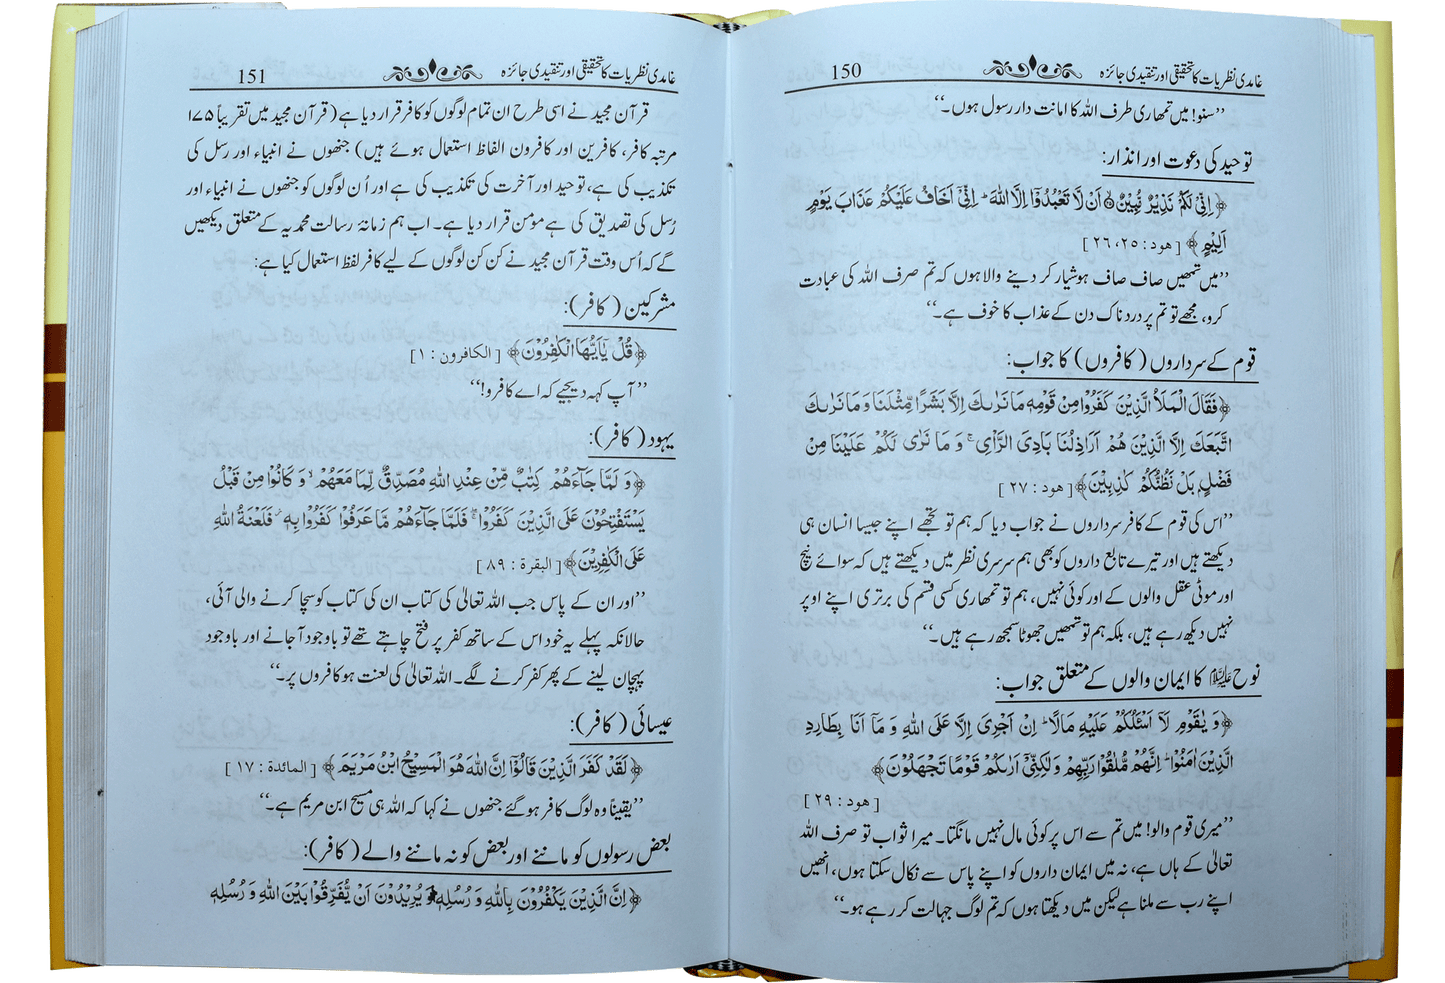 غامدی نظریات کا تحقیقی اور تنقیدی جائزہ 150
’’سنو! میں تمھاری طرف اللہ کا امانت دار رسول ہوں۔‘‘
توحید کی دعوت اور انذار:
﴿اِنِّیْ لَکُمْ نَذِیْرٌ مُّبِیْنٌ۝ اَنْ لَّا تَعْبُدُوْٓا اِلَّا اللّٰہَ ؕ اِنِّیْٓ اَخَافُ عَلَیْکُمْ عَذَابَ یَوْمٍ
اَلِیْمٍ﴾ [ھود: ۲۵، ۲۶]
’’میں تمھیں صاف صاف ہوشیار کر دینے والا ہوں کہ تم صرف اللہ کی عبادت
کرو، مجھے تو تم پر دردناک دن کے عذاب کا خوف ہے۔‘‘
قوم کے سرداروں (کافروں) کا جواب:
﴿فَقَالَ الْمَلَاُ الَّذِیْنَ کَفَرُوْا مِنْ قَوْمِہٖ مَا نَرٰىکَ اِلَّا بَشَرًا مِّثْلَنَا وَ مَا نَرٰىکَ
اتَّبَعَکَ اِلَّا الَّذِیْنَ ھُمْ اَرَاذِلُنَا بَادِیَ الرَّاْیِ ۚ وَ مَا نَرٰی لَکُمْ عَلَیْنَا مِنْ
فَضْلٍ بَلْ نَظُنُّکُمْ کٰذِبِیْنَ﴾ [ھود: ۲۷]
’’اس کی قوم کے کافر سرداروں نے جواب دیا کہ ہم تو تجھے اپنے جیسا انسان ہی
دیکھتے ہیں اور تیرے تابع داروں کو بھی ہم سرسری نظر میں دیکھتے ہیں کہ سوائے نیچ
اور موٹی عقل والوں کے اور کوئی نہیں، ہم تو تمھاری کسی قسم کی برتری اپنے اوپر
نہیں دیکھ رہے ہیں، بلکہ ہم تو تمھیں جھوٹا سمجھ رہے ہیں۔‘‘
نوح علیہ السلام کا ایمان والوں کے متعلق جواب:
﴿وَ یٰقَوْمِ لَآ اَسْئَلُکُمْ عَلَیْہِ مَالًا ؕ اِنْ اَجْرِیَ اِلَّا عَلَی اللّٰہِ وَ مَآ اَنَا بِطَارِدِ
الَّذِیْنَ اٰمَنُوْا ؕ اِنَّھُمْ مُّلٰقُوْا رَبِّھِمْ وَ لٰکِنِّیْٓ اَرٰىکُمْ قَوْمًا تَجْھَلُوْنَ﴾
[ھود: ۲۹]
’’میری قوم والو! میں تم سے اس پر کوئی مال نہیں مانگتا۔ میرا ثواب تو صرف اللہ
تعالیٰ کے ہاں ہے، نہ میں ایمان داروں کو اپنے پاس سے نکال سکتا ہوں، انھیں
اپنے رب سے ملنا ہے لیکن میں دیکھتا ہوں کہ تم لوگ جہالت کر رہے ہو۔‘‘
غامدی نظریات کا تحقیقی اور تنقیدی جائزہ 151
قرآن مجید نے اسی طرح ان تمام لوگوں کو کافر قرار دیا ہے (قرآن مجید میں تقریباً ۱۷۵
مرتبہ کافر، کافرین اور کافرون الفاظ استعمال ہوئے ہیں) جنھوں نے انبیاء اور رسل کی
تکذیب کی ہے، توحید اور آخرت کی تکذیب کی ہے اور اُن لوگوں کو جنھوں نے انبیاء اور
رُسل کی تصدیق کی ہے مؤمن قرار دیا ہے۔ اب ہم زمانۂ رسالت محمدیہ کے متعلق دیکھیں
گے کہ اُس وقت قرآن مجید نے کن کن لوگوں کے لیے کافر لفظ استعمال کیا ہے:
مشرکین (کافر):
﴿قُلْ یٰٓاَیُّھَا الْکٰفِرُوْنَ﴾ [الکافرون: ۱]
’’آپ کہہ دیجیے کہ اے کافرو!‘‘
یہود (کافر):
﴿وَ لَمَّا جَآءَھُمْ کِتٰبٌ مِّنْ عِنْدِ اللّٰہِ مُصَدِّقٌ لِّمَا مَعَھُمْ ۙ وَ کَانُوْا مِنْ قَبْلُ
یَسْتَفْتِحُوْنَ عَلَی الَّذِیْنَ کَفَرُوْا ۚ فَلَمَّا جَآءَھُمْ مَّا عَرَفُوْا کَفَرُوْا بِہٖ ۫ فَلَعْنَۃُ اللّٰہِ
عَلَی الْکٰفِرِیْنَ﴾ [البقرۃ: ۸۹]
’’اور ان کے پاس جب اللہ تعالیٰ کی کتاب ان کی کتاب کو سچا کرنے والی آئی،
حالانکہ پہلے یہ خود اس کے ساتھ کفر پر فتح چاہتے تھے تو باوجود آجانے اور باوجود
پہچان لینے کے پھر کفر کرنے لگے۔ اللہ تعالیٰ کی لعنت ہو کافروں پر۔‘‘
عیسائی (کافر):
﴿لَقَدْ کَفَرَ الَّذِیْنَ قَالُوْٓا اِنَّ اللّٰہَ ھُوَ الْمَسِیْحُ ابْنُ مَرْیَمَ﴾ [المائدۃ: ۱۷]
’’یقیناً وہ لوگ کافر ہو گئے جنھوں نے کہا کہ اللہ ہی مسیح ابن مریم ہے۔‘‘
بعض رسولوں کو ماننے اور بعض کو نہ ماننے والے (کافر):
﴿اِنَّ الَّذِیْنَ یَکْفُرُوْنَ بِاللّٰہِ وَ رُسُلِہٖ وَ یُرِیْدُوْنَ اَنْ یُّفَرِّقُوْا بَیْنَ اللّٰہِ وَ رُسُلِہٖ